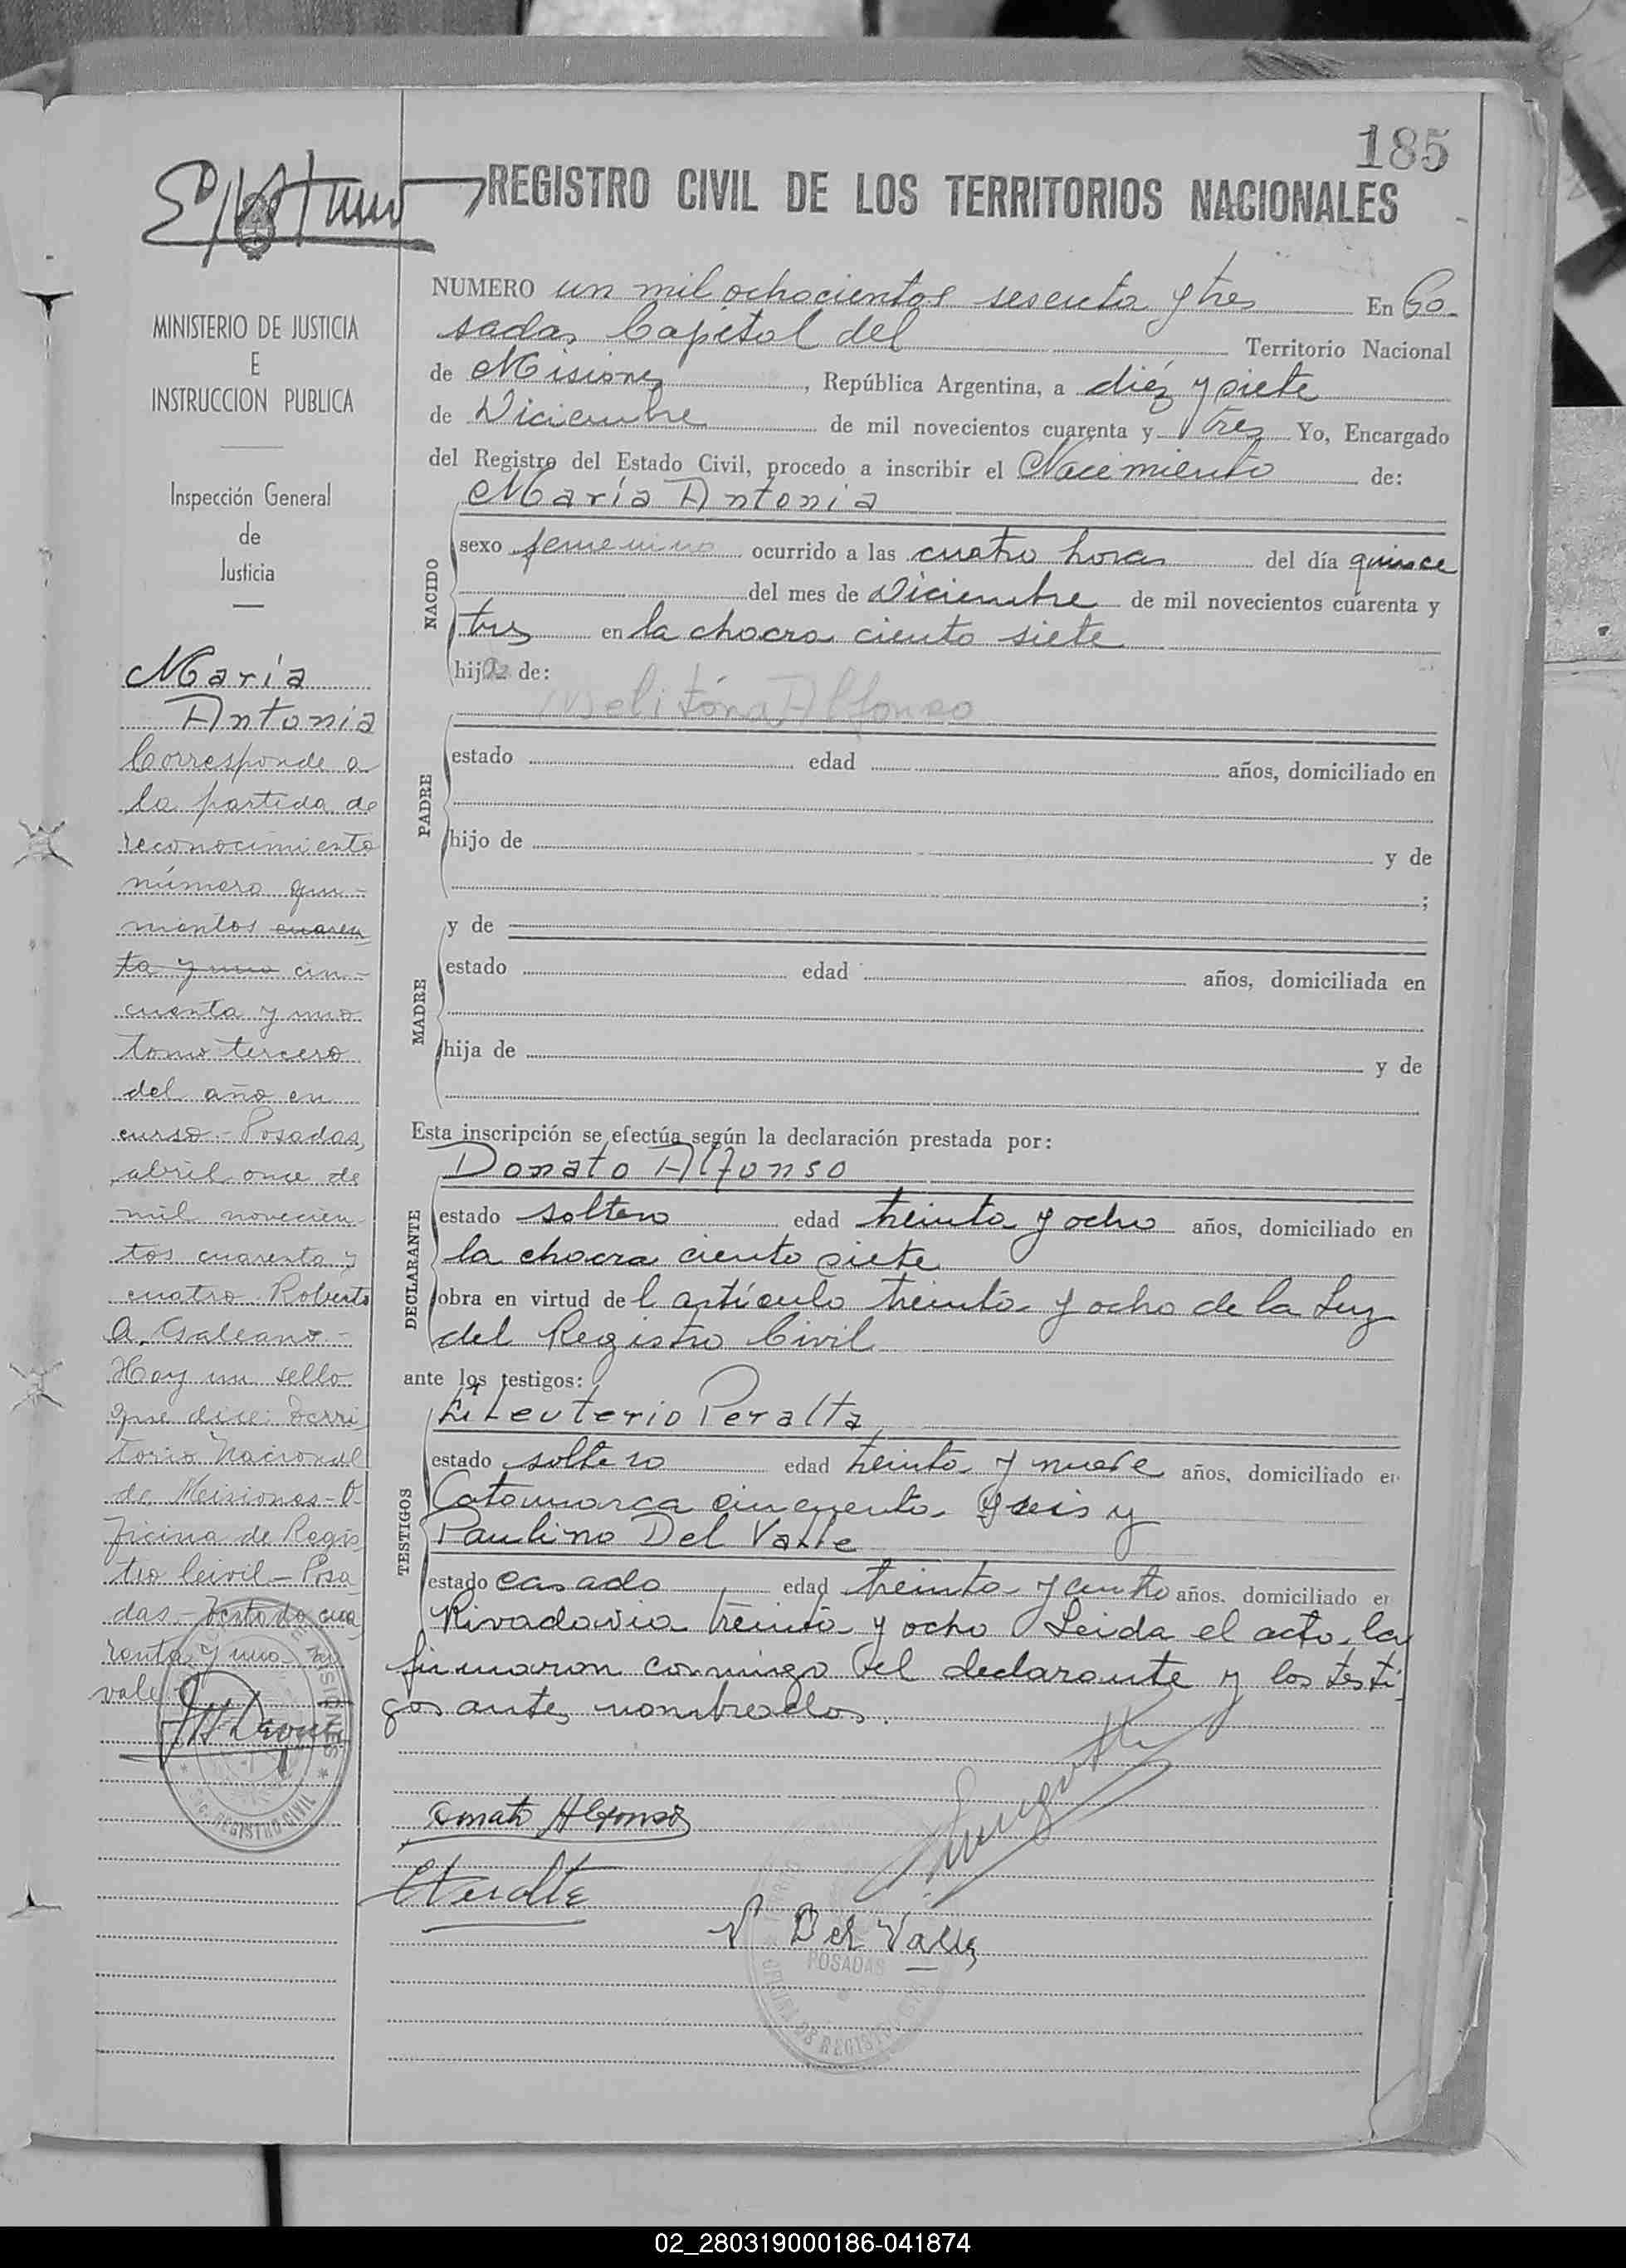 185
REGISTRO CIVIL DE LOS TERRITORIOS NACIONALES
MINISTERIO DE JUSTICIA
E
INSTRUCCION PUBLICA
Inspección General
de
Justicia
María
Antonia
Corresponde a
la partida de
reconocimiento
número qui-
nientos cuaren
ta y uno cin-
cuenta y uno
tomo tercero
del año en
curso - Posadas,
abril once de
mil novecien
tos cuarenta y
cuatro. Roberto
A. Galeano -
Hay un sello
que dice: Terri
torio Nacional
de Misiones - O
ficina de Regis
tro Civil - Posa
das - Testado cua
renta y uno - no
vale
NUMERO un mil ochocientos sesenta y tres En Po-
sadas Capital del Territorio Nacional
de Misiones, República Argentina, a diéz y siete
de Diciembre de mil novecientos cuarenta y tres Yo, Encargado
del Registro del Estado Civil, procedo a inscribir el Nacimiento de:
María Antonia
NACIDO
sexo femenino ocurrido a las cuatro horas del día quince
del mes de Diciembre de mil novecientos cuarenta y
tres en la chacra ciento siete
hija de:
Melitóna Alfonso
PADRE
estado edad años, domiciliado en
hijo de y de
;
MADRE
y de
estado edad años, domiciliada en
hija de y de
Esta inscripción se efectúa según la declaración prestada por:
Donato Alfonso
DECLARANTE
estado soltero edad treinta y ocho años, domiciliado en
la chacra ciento siete
obra en virtud del artículo treinta y ocho de la Ley
del Registro Civil
ante los testigos:
Eleuterio Peralta
TESTIGOS
estado soltero edad treinta y nueve años, domiciliado en
Catamarca cincuenta y seis y
Paulino Del Valle
estado casado edad treinta y cuatro años, domiciliado en
Rivadavia treinta y ocho Leida el acto, la
firmaron conmigo el declarante y los testi-
gos antes nombrados.
Donato Alfonso
EPeralta
P Del Valle
POSADAS
OFICINA DE REGISTRO CIVIL
REGISTRO CIVIL
MISIONES
02_280319000186-041874